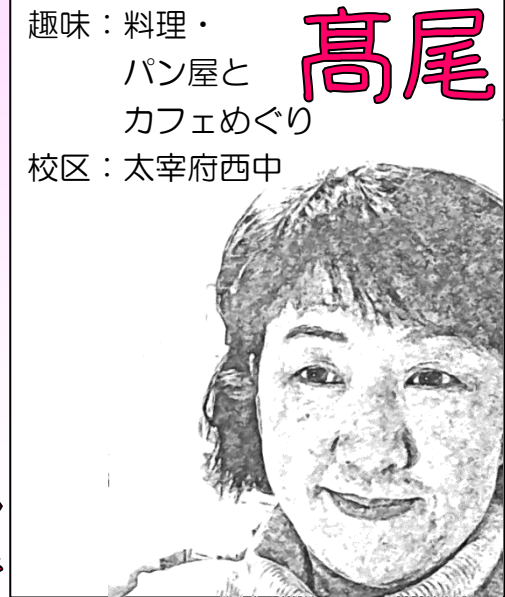 髙尾
趣味：料理・
パン屋と
カフェめぐり
校区：太宰府西中